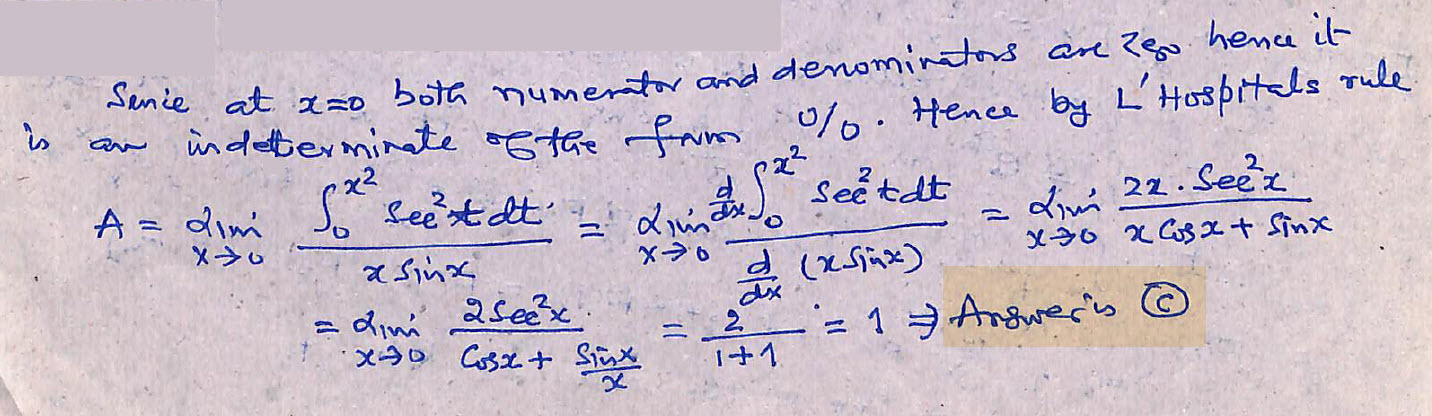 Sinie at x=0 both numerator and denominators are zero hence it
is an indeterminate of the form 0/0. Hence by L'Hospitals rule
A = lim_{x→0} \frac{\int_0^{x^2} sec^2 t dt}{x sin x} = lim_{x→0} \frac{\frac{d}{dx} \int_0^{x^2} sec^2 t dt}{\frac{d}{dx} (x sin x)} = lim_{x→0} \frac{2x . Sec^2 x}{x Cos x + Sin x}
= lim_{x→0} \frac{2 Sec^2 x}{Cos x + \frac{Sin x}{x}} = \frac{2}{1+1} = 1 ⇒ Answer is ©